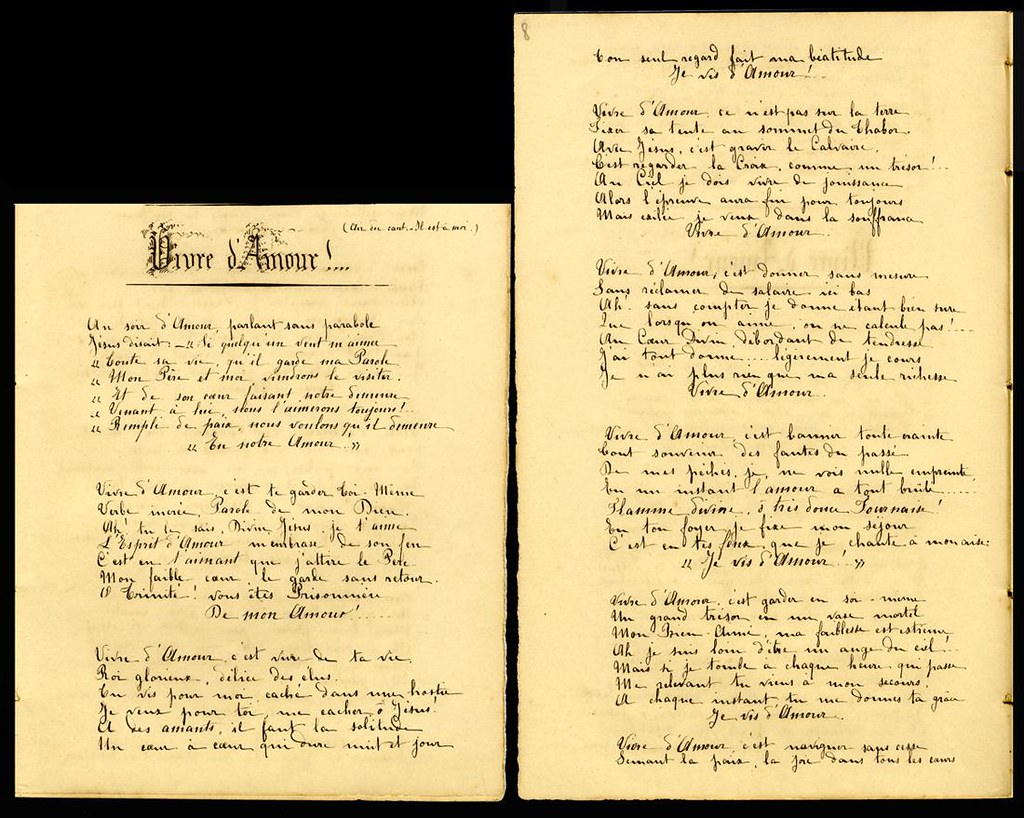 Vivre d'Amour!...
(Air du cant. - Il est à moi.)
Au soir d'Amour, parlant sans parabole
Jésus disait : — « Si quelqu'un veut m'aimer
« Toute sa vie, qu'il garde ma Parole
« Mon Père et moi, viendrons le visiter.
« Et de son cœur faisant notre demeure
« Venant à lui, nous l'aimerons toujours!..
« Rempli de paix, nous voulons qu'il demeure
« En notre Amour!.. »
Vivre d'Amour, c'est te garder Toi-Même
Verbe incréé, Parole de mon Dieu.
Ah! tu le sais, Divin Jésus, je t'aime
L'Esprit d'Amour m'embrase de son feu
C'est en t'aimant que j'attire le Père
Mon faible cœur, le garde sans retour.
O Trinité! vous êtes Prisonnière
De mon Amour!......
Vivre d'Amour, c'est vivre de ta vie,
Roi glorieux, délice des élus.
Tu vis pour moi, caché dans une hostie
Je veux pour toi, me cacher ô Jésus!
A des amants, il faut la solitude
Un cœur à cœur qui dure nuit et jour
8
Ton seul regard fait ma béatitude
Je vis d'Amour!...
Vivre d'Amour, ce n'est pas sur la terre
Fixer sa tente au sommet du Thabor.
Avec Jésus, c'est gravir le Calvaire,
C'est regarder la Croix, comme un trésor!...
Au Ciel je dois vivre de jouissance
Alors l'épreuve aura fui pour toujours
Mais exilée je veux dans la souffrance
Vivre d'Amour.
Vivre d'Amour, c'est donner sans mesure
Sans réclamer de salaire ici bas
Ah! sans compter je donne étant bien sûre
Que lorsqu'on aime, on ne calcule pas!...
Au Cœur Divin, débordant de tendresse
J'ai tout donné.... légèrement je cours
Je n'ai plus rien que ma seule richesse
Vivre d'Amour.
Vivre d'Amour, c'est bannir toute crainte
Tout souvenir des fautes du passé.
De mes péchés, je ne vois nulle empreinte,
En un instant l'amour a tout brûlé......
Flamme divine, ô très douce Fournaise!
En ton foyer je fixe mon séjour
C'est en tes feux que je chante à mon aise:
« Je vis d'Amour!... »
Vivre d'Amour, c'est garder en soi-même
Un grand trésor en un vase mortel
Mon Bien-Aimé, ma faiblesse est extrême
Ah je suis loin d'être un ange du ciel!...
Mais si je tombe à chaque heure qui passe
Me relevant tu viens à mon secours,
A chaque instant tu me donnes ta grâce
Je vis d'Amour.
Vivre d'Amour, c'est naviguer sans cesse
Semant la paix, la joie dans tous les cœurs